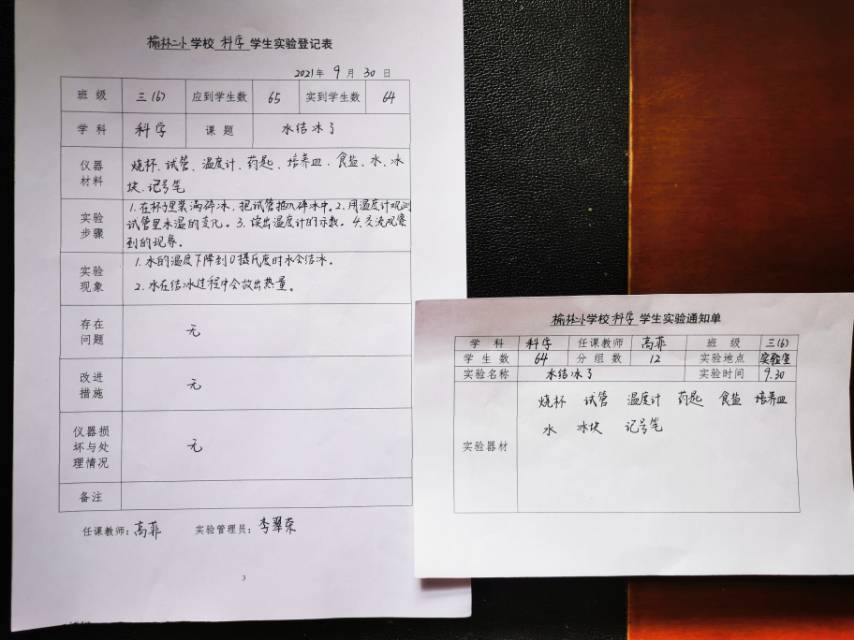 榆林二小学校 科学 学生实验登记表
2021年 9 月 30 日
班 级 三(6) 应到学生数 65 实到学生数 64
学 科 科学 课 题 水结冰了
仪器材料 烧杯、试管、温度计、药匙、培养皿、食盐、水、冰
块、记号笔
实验步骤 1.在杯子里装满碎冰,把试管插入碎冰中。2.用温度计观测
试管里水温的变化。3.读出温度计的示数。4.交流观察
到的现象。
实验现象 1.水的温度下降到0摄氏度时水会结冰。
2.水在结冰过程中会放出热量。
存在问题 无
改进措施 无
仪器损坏与处理情况 无
备注
任课教师:高菲 实验管理员:李翠荣
3
榆林二小学校 科学 学生实验通知单
学 科 科学 任课教师 高菲 班 级 三(6)
学 生 数 64 分 组 数 12 实验地点 实验室
实验名称 水结冰了 实验时间 9.30
实验器材 烧杯 试管 温度计 药匙 食盐 培养皿
水 冰块 记号笔